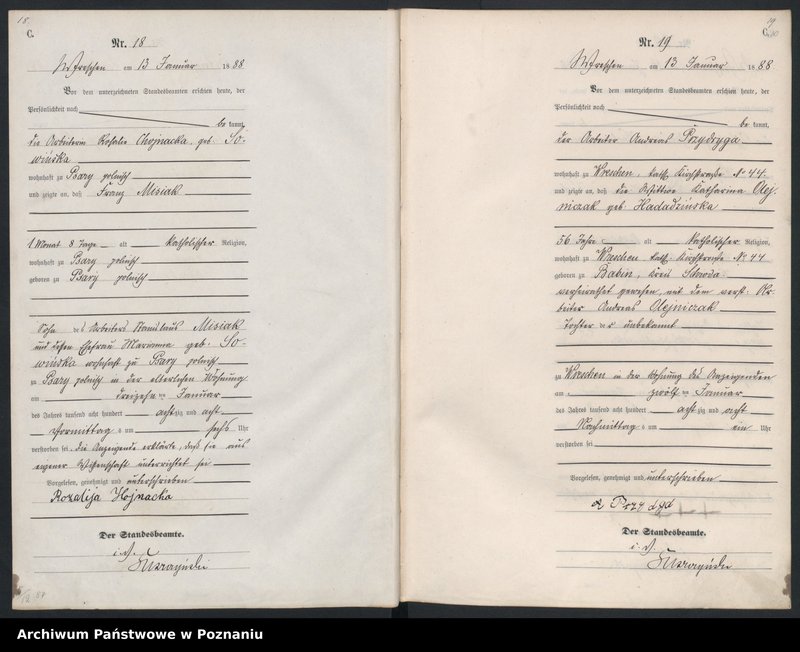 18
C.
Nr. 18
Wreschen am 13 Januar 1888
Vor dem unterzeichneten Standesbeamten erschien heute, der
Persönlichkeit nach
be kannt,
die Arbeiterin Rosalie Chojnacka, geb: So-
wińska
wohnhaft zu Bary polnisch
und zeigte an, daß Franz Misiak
1 Monat 8 Tage alt katholischer Religion,
wohnhaft zu Bary polnisch
geboren zu Bary polnisch
Sohn des Arbeiters Stanislaus Misiak
und dessen Ehefrau Marianna geb: So-
wińska wohnhaft zu Bary polnisch
zu Bary polnisch in der elterlichen Wohnung
am dreizehnten Januar
des Jahres tausend acht hundert achtzig und acht
Vormittag s um sechs Uhr
verstorben sei, die Anzeigende erklärte, daß sie aus
eigener Wissenschaft unterrichtet sei
Vorgelesen, genehmigt und unterschrieben
Rozalija Hojnacka
Der Standesbeamte.
i. V.
19
C.
Nr. 19
Wreschen am 13 Januar 1888.
Vor dem unterzeichneten Standesbeamten erschien heute, der
Persönlichkeit nach
be kannt,
der Arbeiter Andreas Przydryga
wohnhaft zu Wreschen, kath. Kirchstraße No 44
und zeigte an, daß die Wittwe Katharina Olej-
niczak geb: Hadadzińska
56 Jahre alt katholischer Religion,
wohnhaft zu Wreschen kath. Kirchstraße No 44
geboren zu Babin, Kreis
verheirathet gewesen, mit dem verst. Ar-
beiter Andreas Olejniczak
Tochter der unbekannt
zu Wreschen in der Wohnung des Anzeigenden
am zwölften Januar
des Jahres tausend acht hundert achtzig und acht
Nachmittag s um ein Uhr
verstorben sei
Vorgelesen, genehmigt und unterschrieben
Der Standesbeamte.
i. V.
Archiwum Państwowe w Poznaniu